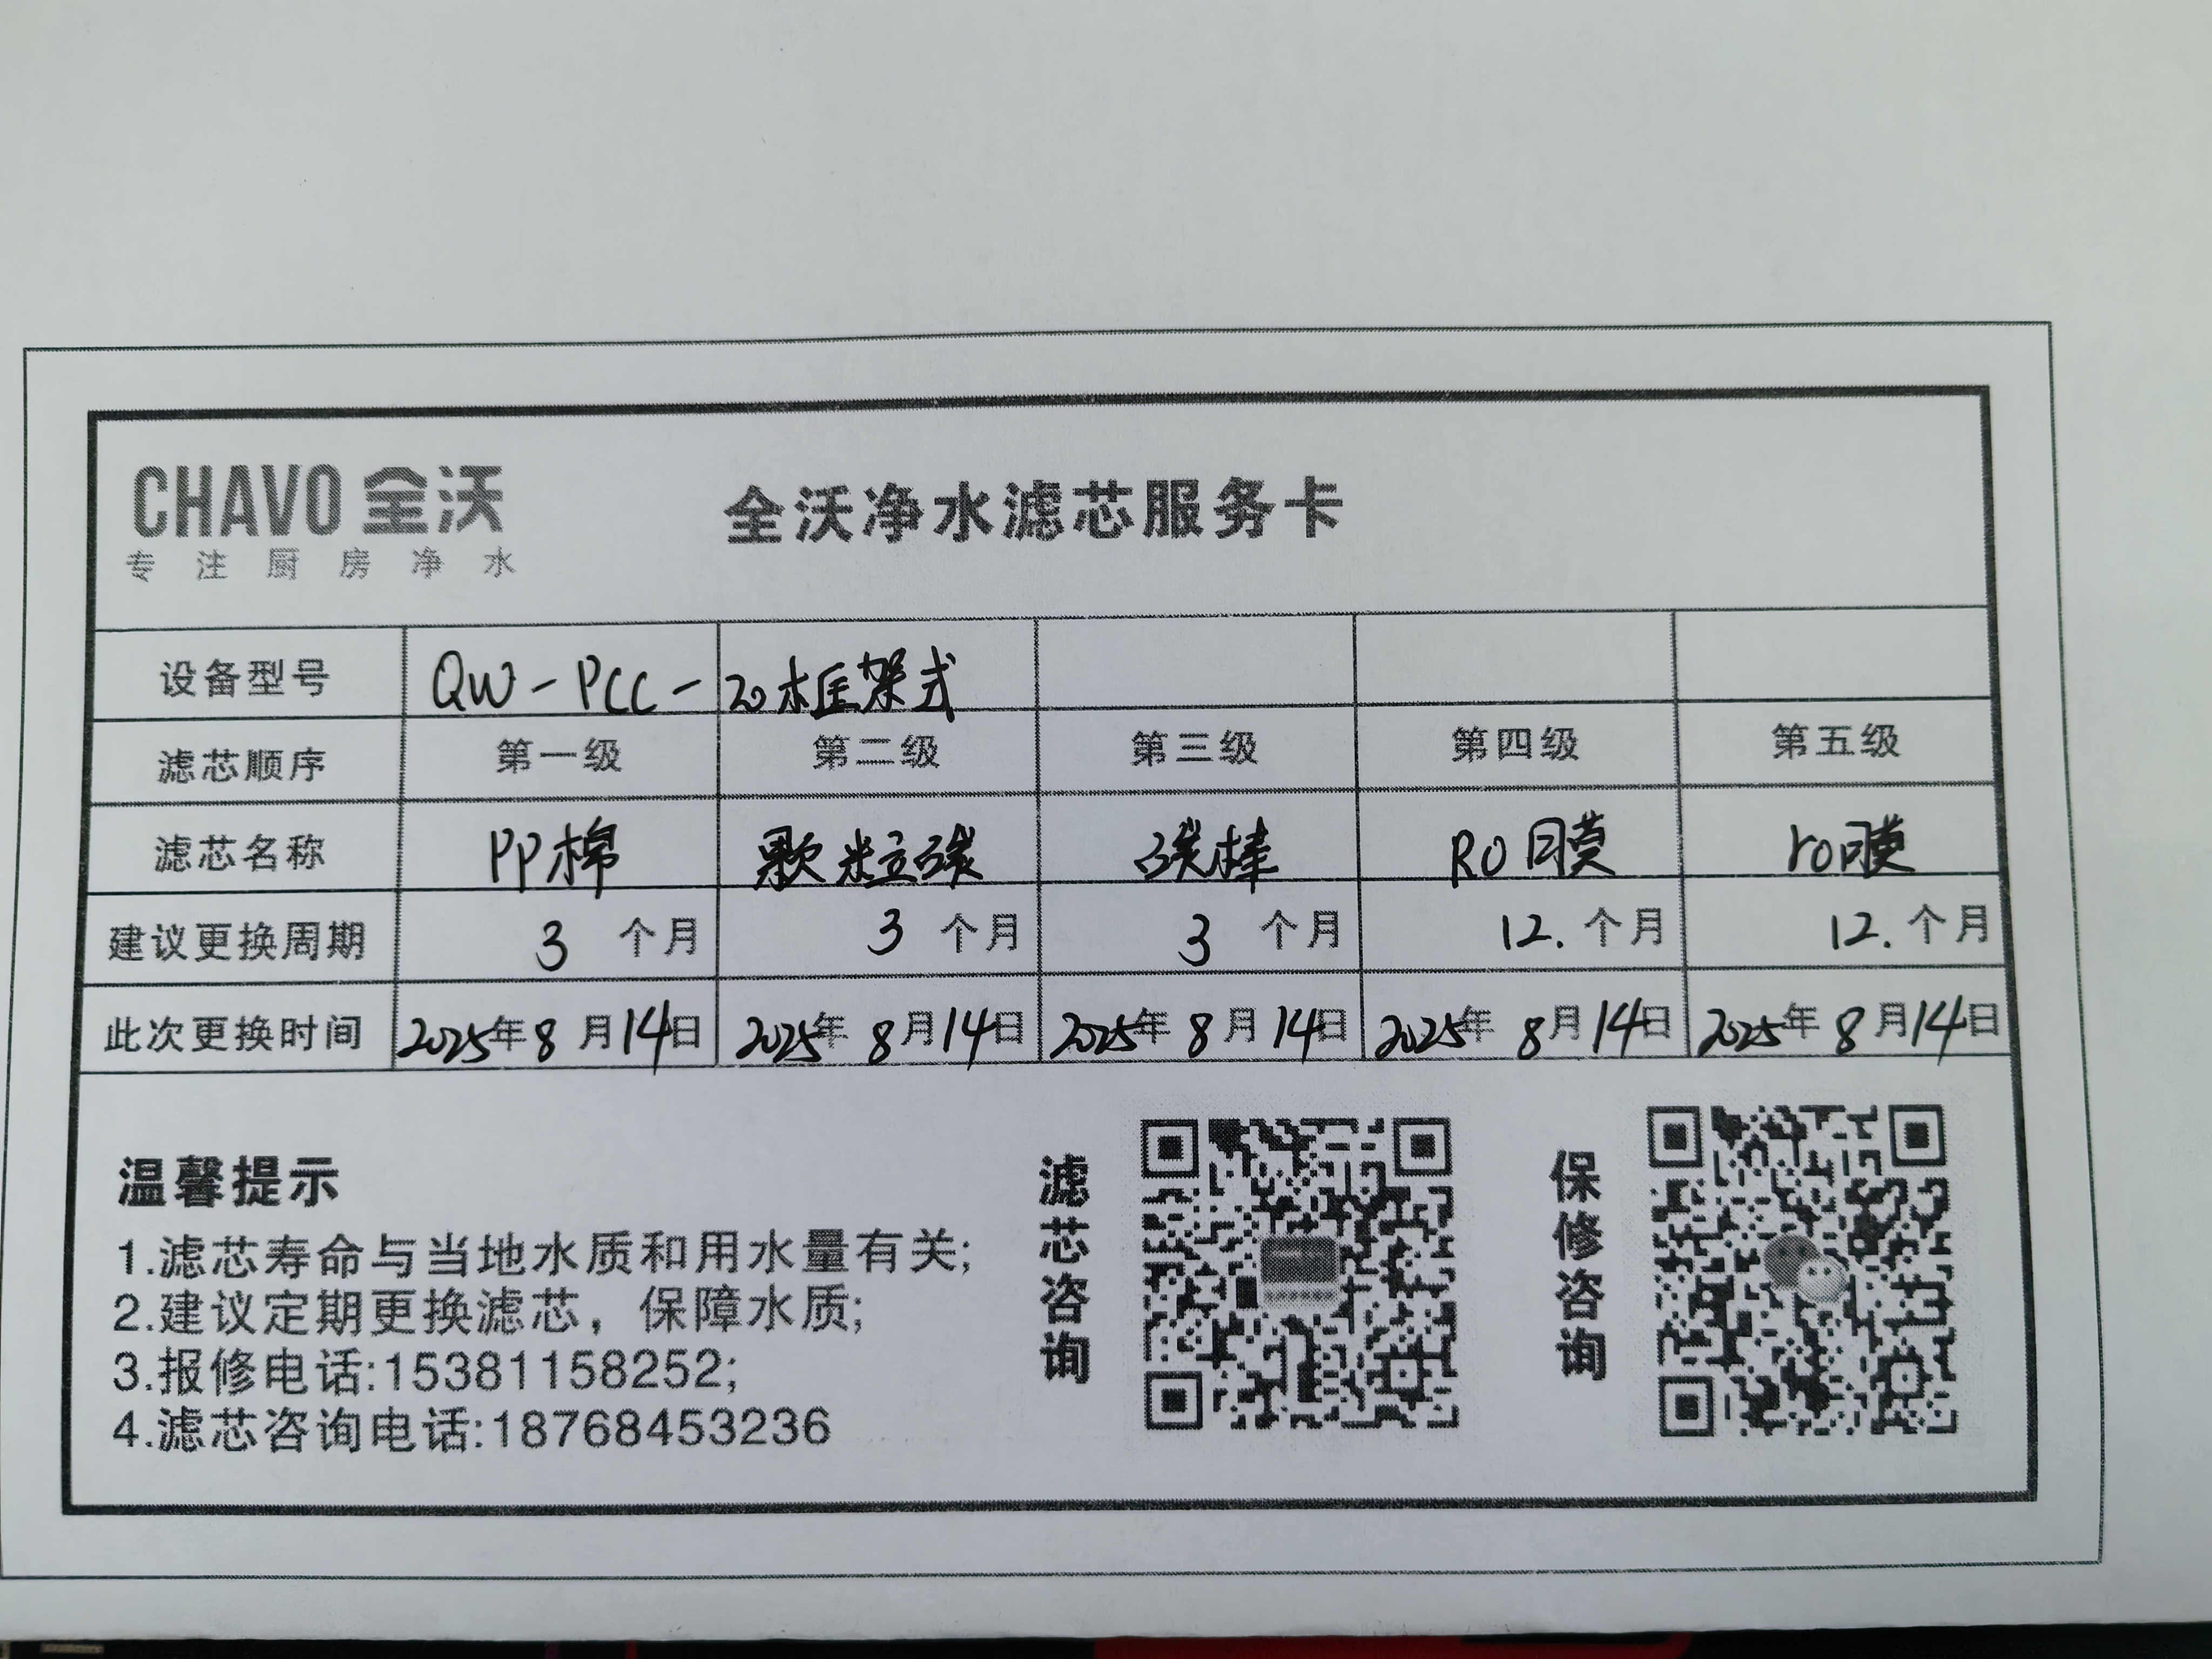 CHAVO 全沃
专注厨房净水
全沃净水滤芯服务卡
设备型号 QW-PCC-20框架式
滤芯顺序 第一级 第二级 第三级 第四级 第五级
滤芯名称 PP棉 颗粒碳 碳棒 RO膜 ro膜
建议更换周期 3 个月 3 个月 3 个月 12. 个月 12. 个月
此次更换时间 2025年8月14日 2025年8月14日 2025年8月14日 2025年8月14日 2025年8月14日
温馨提示
1.滤芯寿命与当地水质和用水量有关;
2.建议定期更换滤芯，保障水质;
3.报修电话:15381158252;
4.滤芯咨询电话:18768453236
滤芯咨询
保修咨询